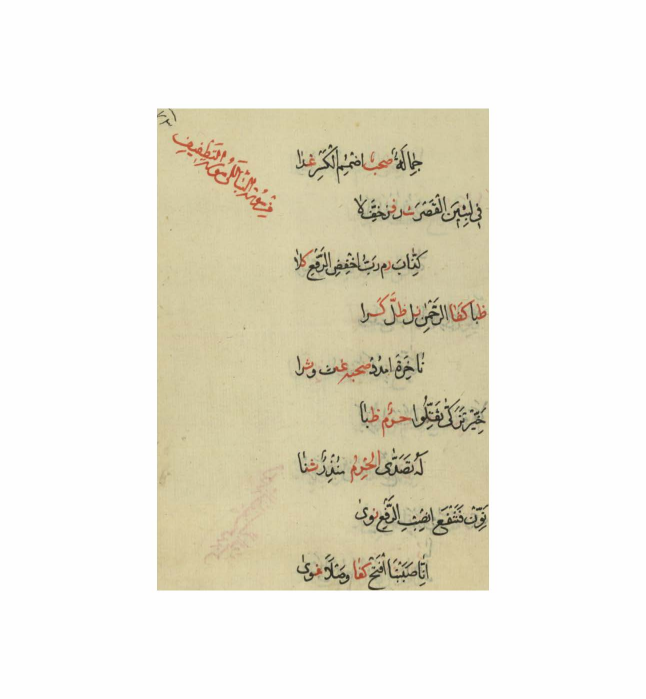 من سورة النبأ الى سورة التطفيف
جمالة صحب اضمم الكسر غدا
في لبثين القصر شد فز خف لا
كذاب رم رب اخفض الرفع كلا
ظبا كفا الرحمن نل ظل كرا
ناخرة امدد صحبة غث وترا
خير تزكى ثقلوا حرم ظبا
له تصدى الحرم منذر ثنا
نون فتنفع انصب الرفع نوى
انا صببنا افتح كفا وصلا غوى